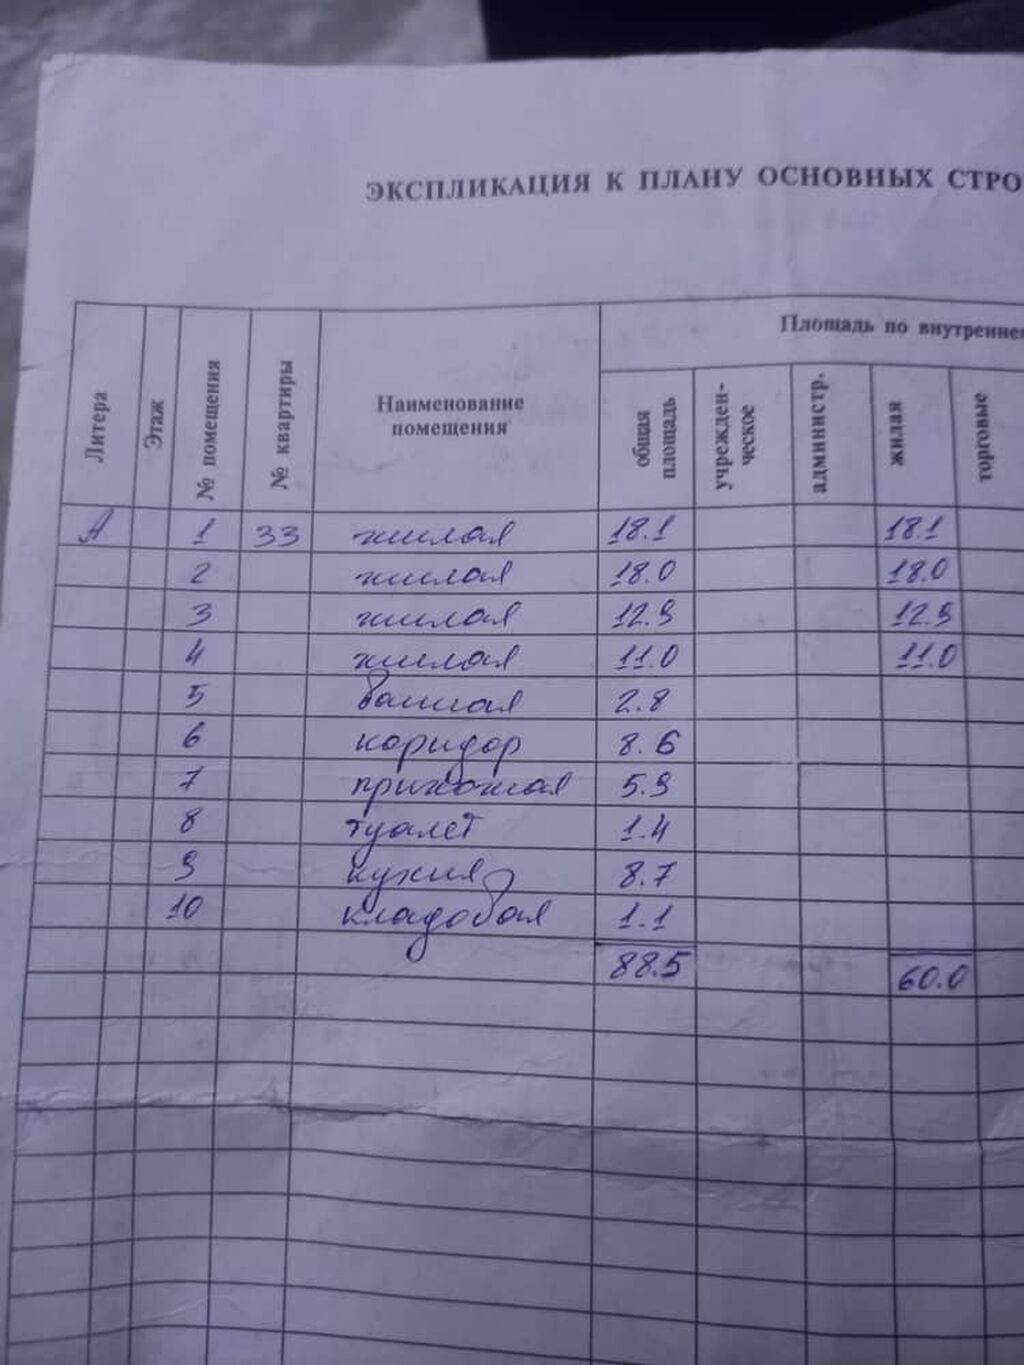 ЭКСПЛИКАЦИЯ К ПЛАНУ ОСНОВНЫХ СТРО
Литера Этаж № помещения № квартиры Наименование помещения Площадь по внутренне
общая площадь учрежден-ческое администр. жилая торговые
А 1 33 жилая 18.1 18.1
2 жилая 18.0 18.0
3 жилая 12.9 12.9
4 жилая 11.0 11.0
5 ванная 2.8
6 коридор 8.6
7 прихожая 5.9
8 туалет 1.4
9 кухня 8.7
10 кладовая 1.1
88.5 60.0